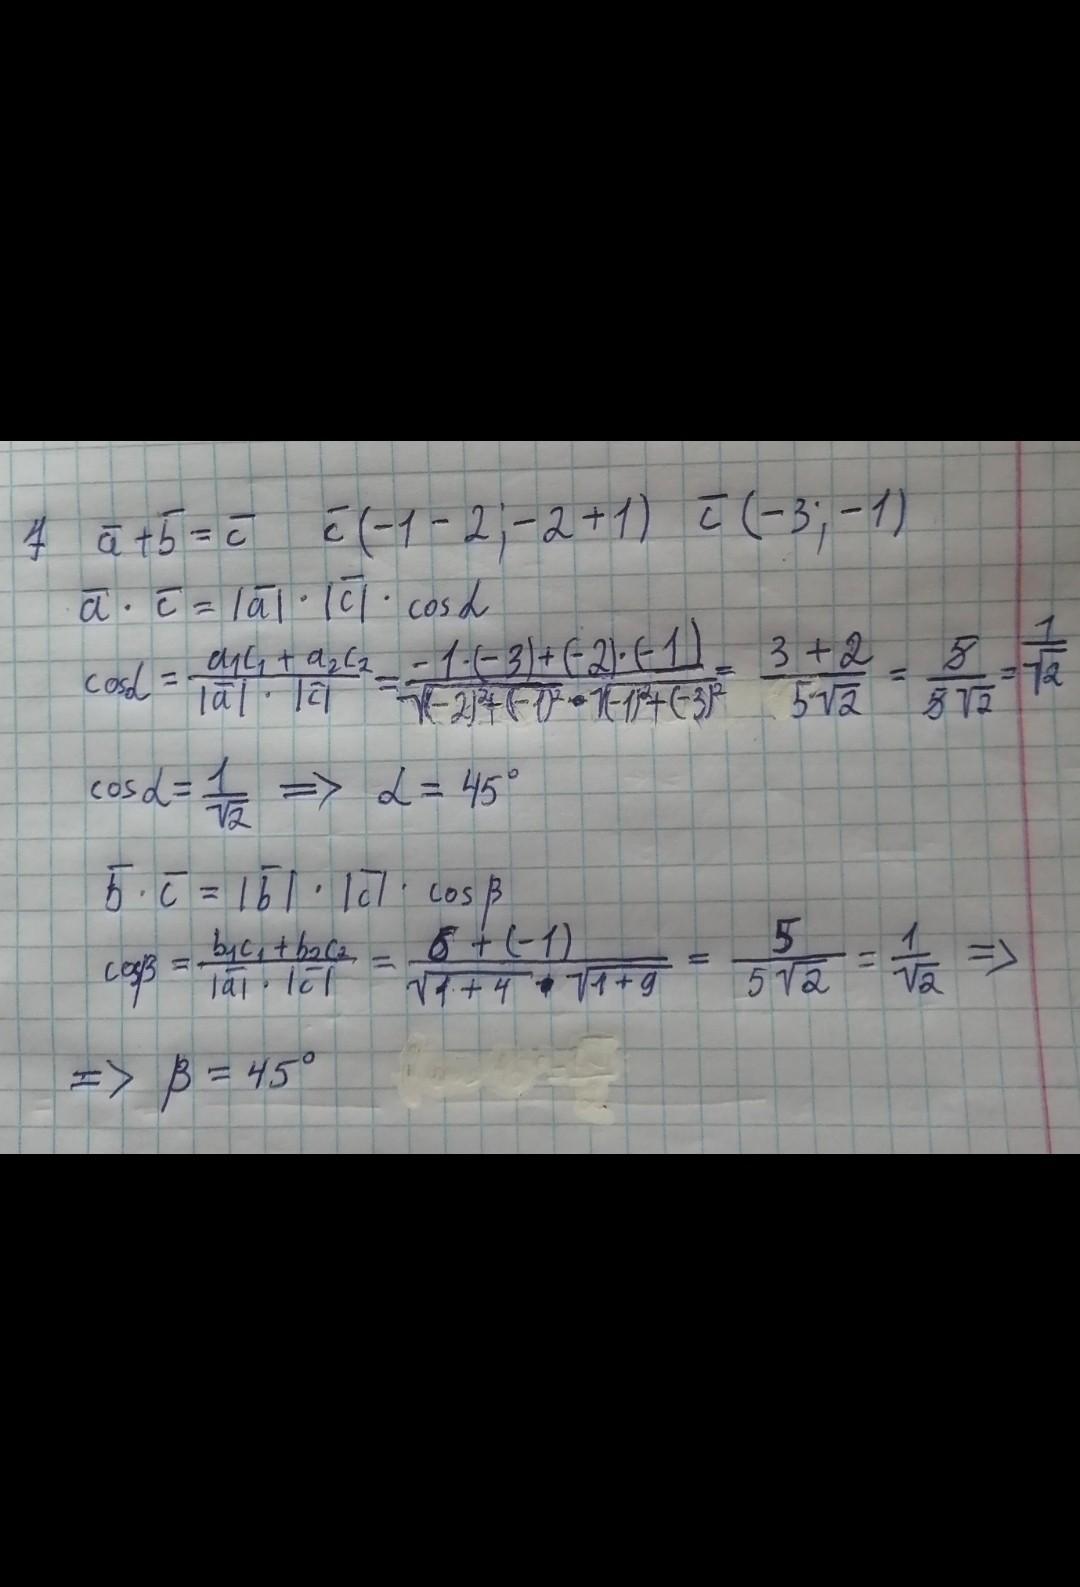 7 a̅ + b̅ = c̅ c̅ (-1 - 2; -2 + 1) c̅ (-3; -1)
a̅ · c̅ = |a̅| · |c̅| · cos α
cos α = (a₁c₁ + a₂c₂)/(|a̅| · |c̅|) = (-1·(-3)+(-2)·(-1))/(√(-2)²+(-1)² · √(-1)²+(-3)²) = (3 + 2)/(5√2) = 5/(5√2) = 1/√2
cos α = 1/√2 => α = 45°
b̅ · c̅ = |b̅| · |c̅| · cos β
cos β = (b₁c₁ + b₂c₂)/(|a̅| · |c̅|) = (6 + (-1))/(√1 + 4 · √1 + 9) = 5/(5√2) = 1/√2 =>
=> β = 45°